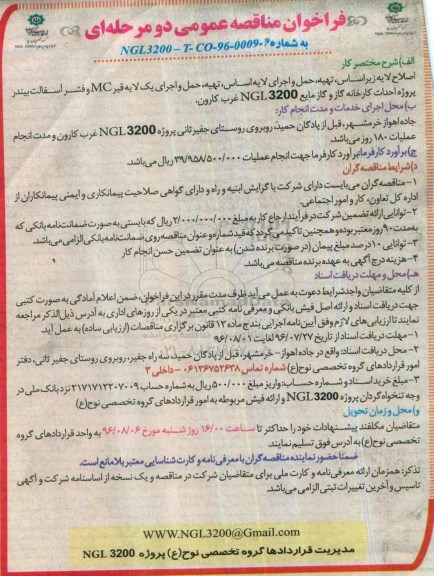 فراخوان مناقصه عمومی دو مرحله‌ای
به شماره NGL3200 – T- CO-96-0009-7
الف) شرح مختصر کار
اصلاح لایه زیراساس، تهیه، حمل و اجرای لایه اساس، تهیه، حمل و اجرای یک لایه قیر MC و قشر آسفالت بیندر
پروژه احداث کارخانه گاز و گاز مایع NGL 3200 غرب کارون.
ب) محل اجرای خدمات و مدت انجام کار:
جاده اهواز خرمشهر، قبل از پادگان حمید، روبروی روستای جفیر ثانی پروژه NGL 3200 غرب کارون و مدت انجام
عملیات ۱۸۰ روز می‌باشد.
ج) برآورد کارفرما: برآورد کارفرما جهت انجام عملیات ۳۹/۹۵۸/۵۰۰/۰۰۰ ریال می‌باشد.
د) شرایط مناقصه گران
۱- مناقصه گران می‌بایست دارای شرکت با گرایش ابنیه و راه و دارای گواهی صلاحیت پیمانکاری و ایمنی پیمانکاران از
اداره کل تعاون، کار و امور اجتماعی.
۲- توانایی ارائه تضمین شرکت در فرآیند ارجاع کار به مبلغ ۲/۰۰۰/۰۰۰/۰۰۰ ریال که بایستی به صورت ضمانت‌نامه بانکی که
به مدت ۹۰ روز معتبر بوده و همچنین تاکید می‌گردد که قید شماره و عنوان مناقصه روی ضمانت‌نامه بانکی الزامی می‌باشد.
۳- توانایی ۱۰ درصد مبلغ پیمان (در صورت برنده شدن) به عنوان تضمین حسن انجام کار
۴- هزینه درج آگهی به عهده برنده مناقصه می‌باشد.
هـ) محل و مهلت دریافت اسناد
از کلیه متقاضیان واجد شرایط دعوت به عمل می‌آید ظرف مدت مقرر در این فراخوان، ضمن اعلام آمادگی به صورت کتبی
جهت دریافت اسناد و ارائه اصل فیش بانکی و معرفی نامه کتبی معتبر در یکی از روزهای اداری به آدرس ذیل الذکر مراجعه
نمایند تا ارزیابی‌های لازم وفق آیین‌نامه اجرایی بند ج ماده ۱۲ قانون برگزاری مناقصات (ارزیابی ساده) به عمل آید
۱- مهلت دریافت اسناد از تاریخ ۹۶/۰۷/۲۷ لغایت ۹۶/۰۸/۰۱
۲- محل دریافت اسناد: واقع در جاده اهواز - خرمشهر، قبل از پادگان حمید، سه راه جفیر، روبروی روستای جفیر ثانی، دفتر
امور قراردادهای گروه تخصصی نوح(ع) شماره تماس ۰۶۱۳۶۷۵۲۶۳۸ - داخلی ۳
۳- مبلغ خرید اسناد و شماره حساب: واریز مبلغ ۵۰۰/۰۰۰ ریال به شماره حساب ۲۱۷۱۷۱۲۲۰۷۰۰۹ نزد بانک ملی در
وجه تنخواه گردان پروژه NGL 3200 و ارائه فیش مربوطه به امور قراردادهای گروه تخصصی نوح(ع)
و) محل و زمان تحویل
متقاضیان مکلفند پیشنهادات خود را حداکثر تا ساعت ۱۶/۰۰ روز شنبه مورخ ۹۶/۰۸/۰۶ به واحد قراردادهای گروه
تخصصی نوح(ع) به آدرس فوق تسلیم نمایند.
ضمنا حضور نماینده مناقصه گران با معرفی نامه و کارت شناسایی معتبر بلامانع است.
تذکر: همزمان ارائه معرفی‌نامه و کارت ملی برای متقاضیان شرکت در مناقصه و یک نسخه از اساسنامه شرکت و آگهی
تاسیس و آخرین تغییرات ثبتی الزامی می‌باشد.
WWW.NGL3200@Gmail.com
مدیریت قراردادها گروه تخصصی نوح(ع) پروژه NGL 3200